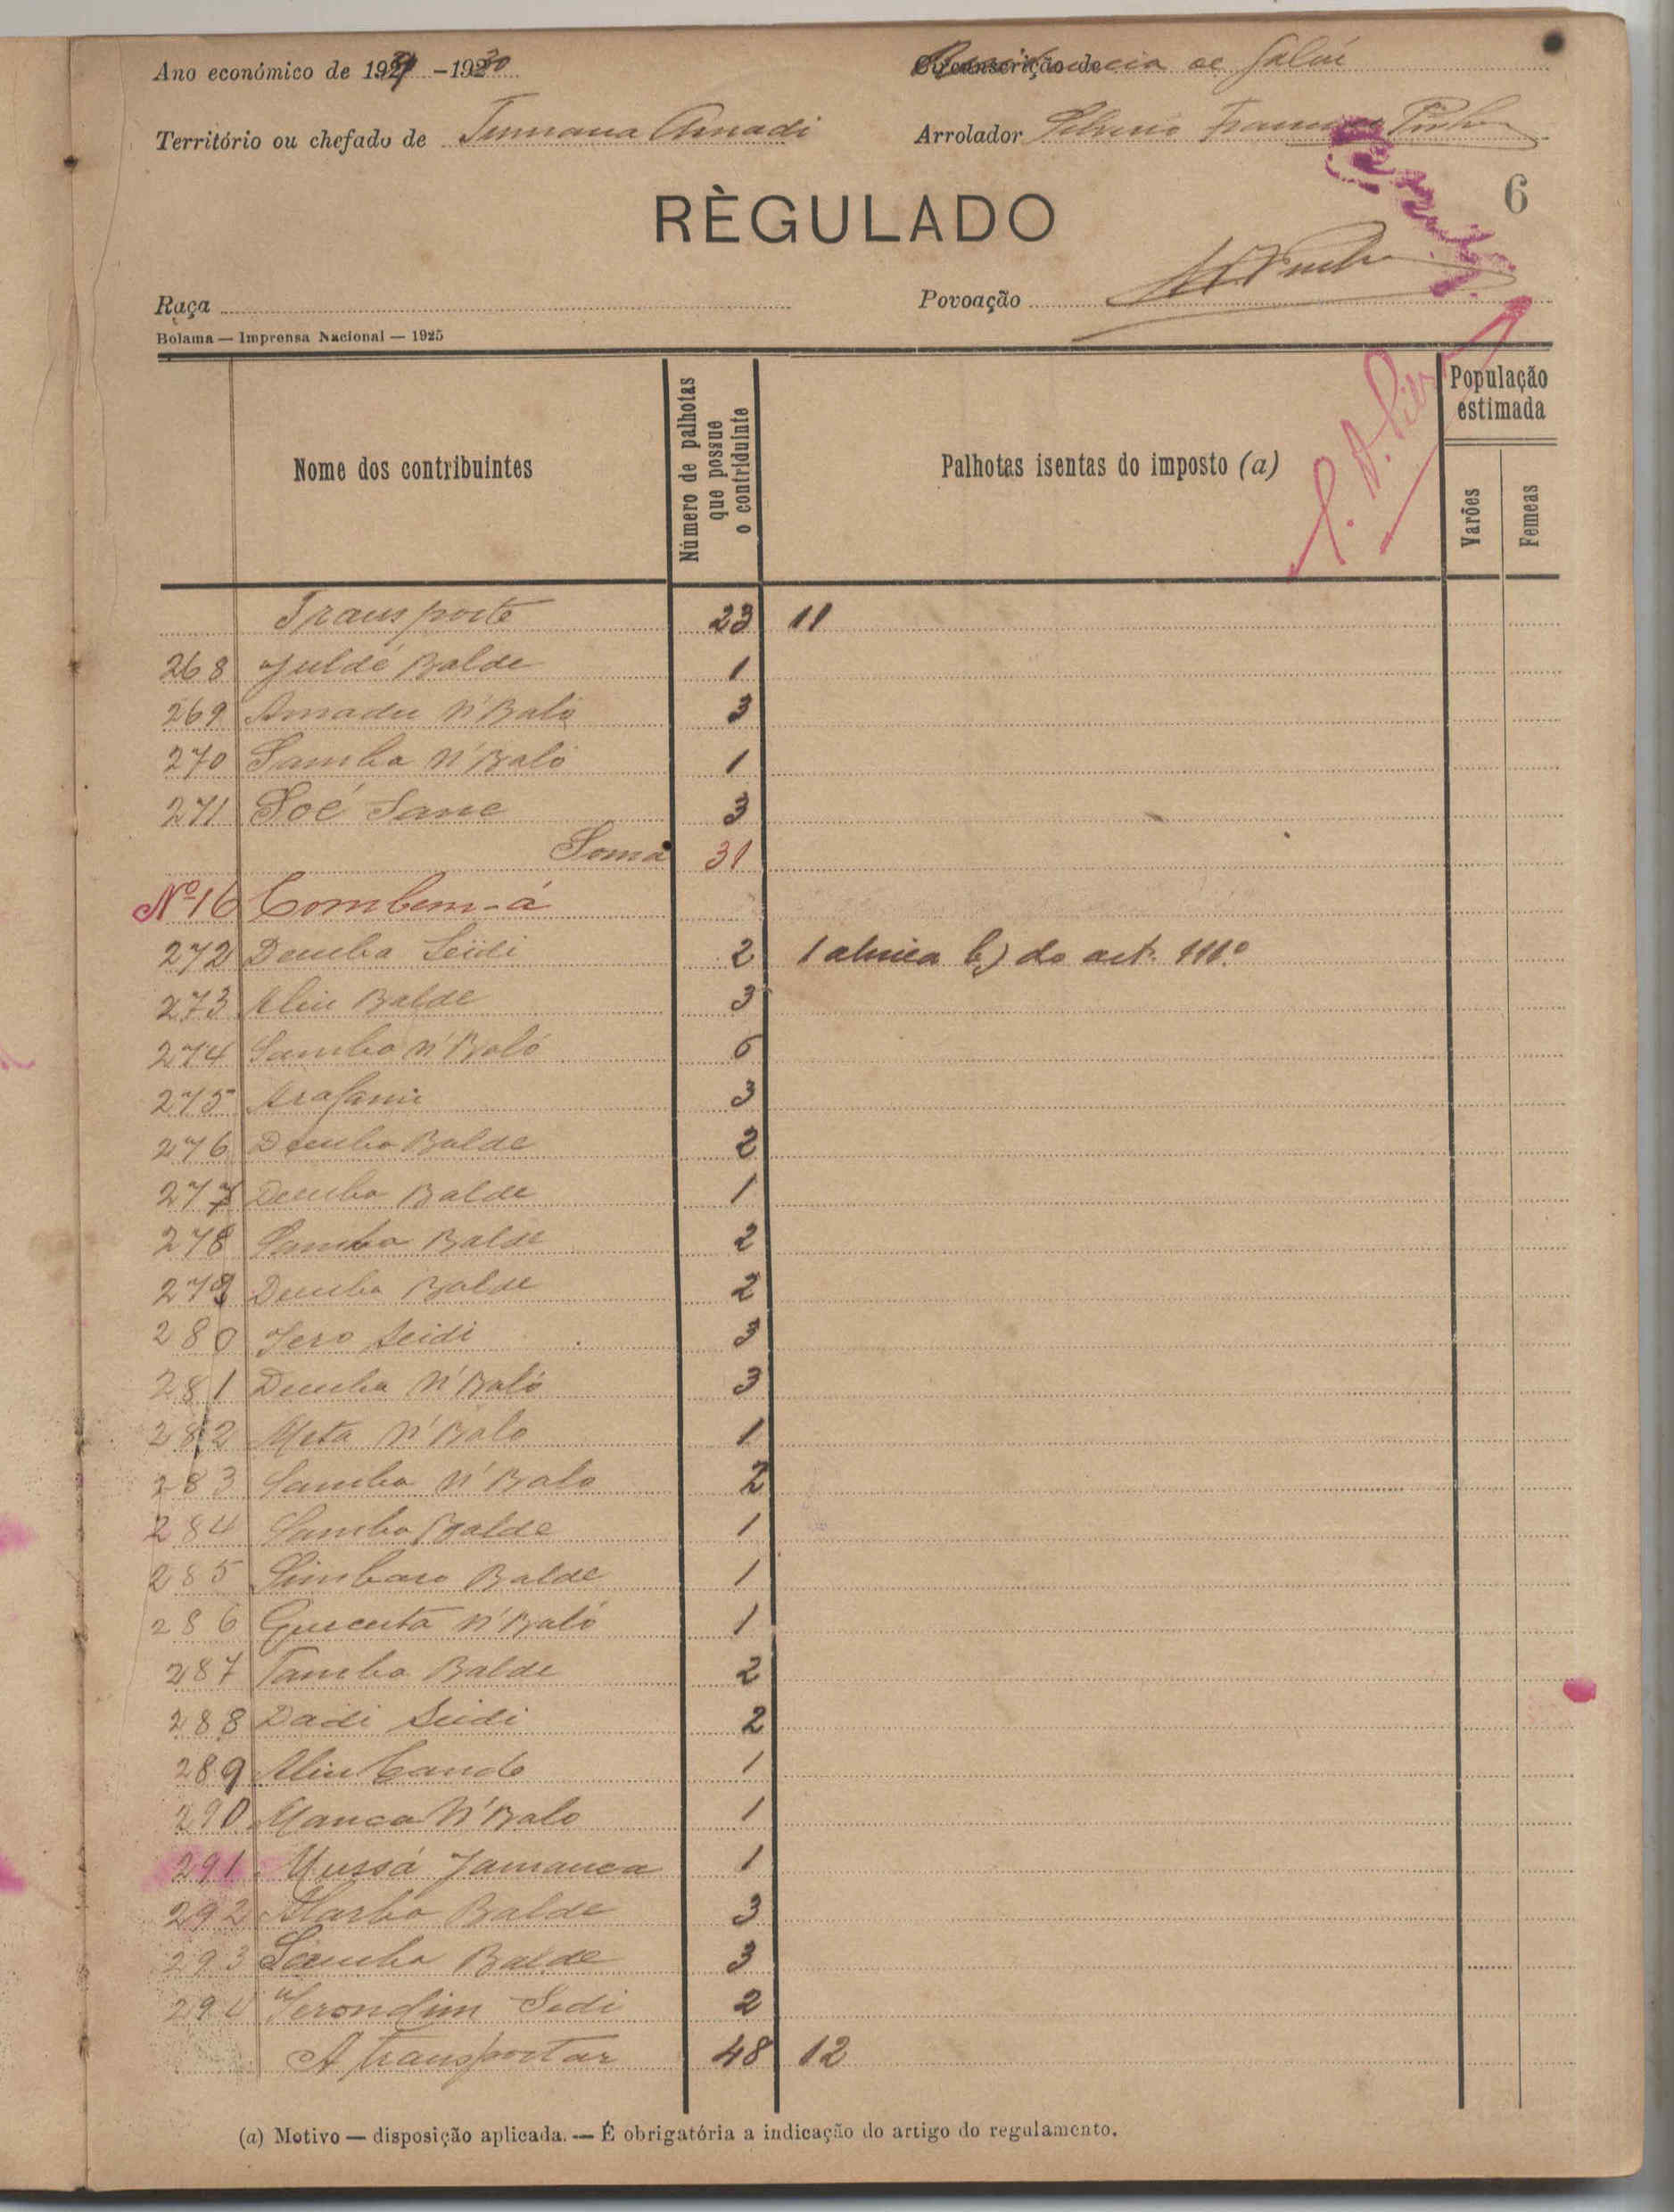 Ano económico de 1929-1930
Circunscrição de
Território ou chefado de Tumana Amadi
Arrolador Silverio Francisco Pinho
6
RÈGULADO
Raça
Povoação
Bolama — Imprensa Nacional — 1925
Nome dos contribuintes
Número de palhotas que possue o contriduinte
Palhotas isentas do imposto (a)
População estimada
Varões
Femeas
Transporte 23 11
268 Juldé Balde 1
269 Amadu N'Balo 3
270 Samba N'Balo 1
271 Soé Sane 3
Soma 31
Nº 16 Combem-á
272 Demba Seidi 2 1 alinea b) do art. 111.º
273 Aliu Balde 3
274 Samba N'Baló 6
275 3
276 Demba Balde 2
277 Demba Balde 1
278 Samba Balde 2
279 Demba Balde 2
280 Jero Seidi 3
281 Demba N'Baló 3
282 Meta N'Balo 1
283 Samba N'Balo 2
284 Samba Balde 1
285 Simbaro Balde 1
286 N'Baló 1
287 Tamba Balde 2
288 Dadi Seidi 2
289 Aliu Cando 1
290 Mança N'Balo 1
291 Mussá Jamanca 1
292 Balde 3
293 Samba Balde 3
294 Jerondim Sedi 2
A transportar 48 12
(a) Motivo — disposição aplicada. — É obrigatória a indicação do artigo do regulamento.